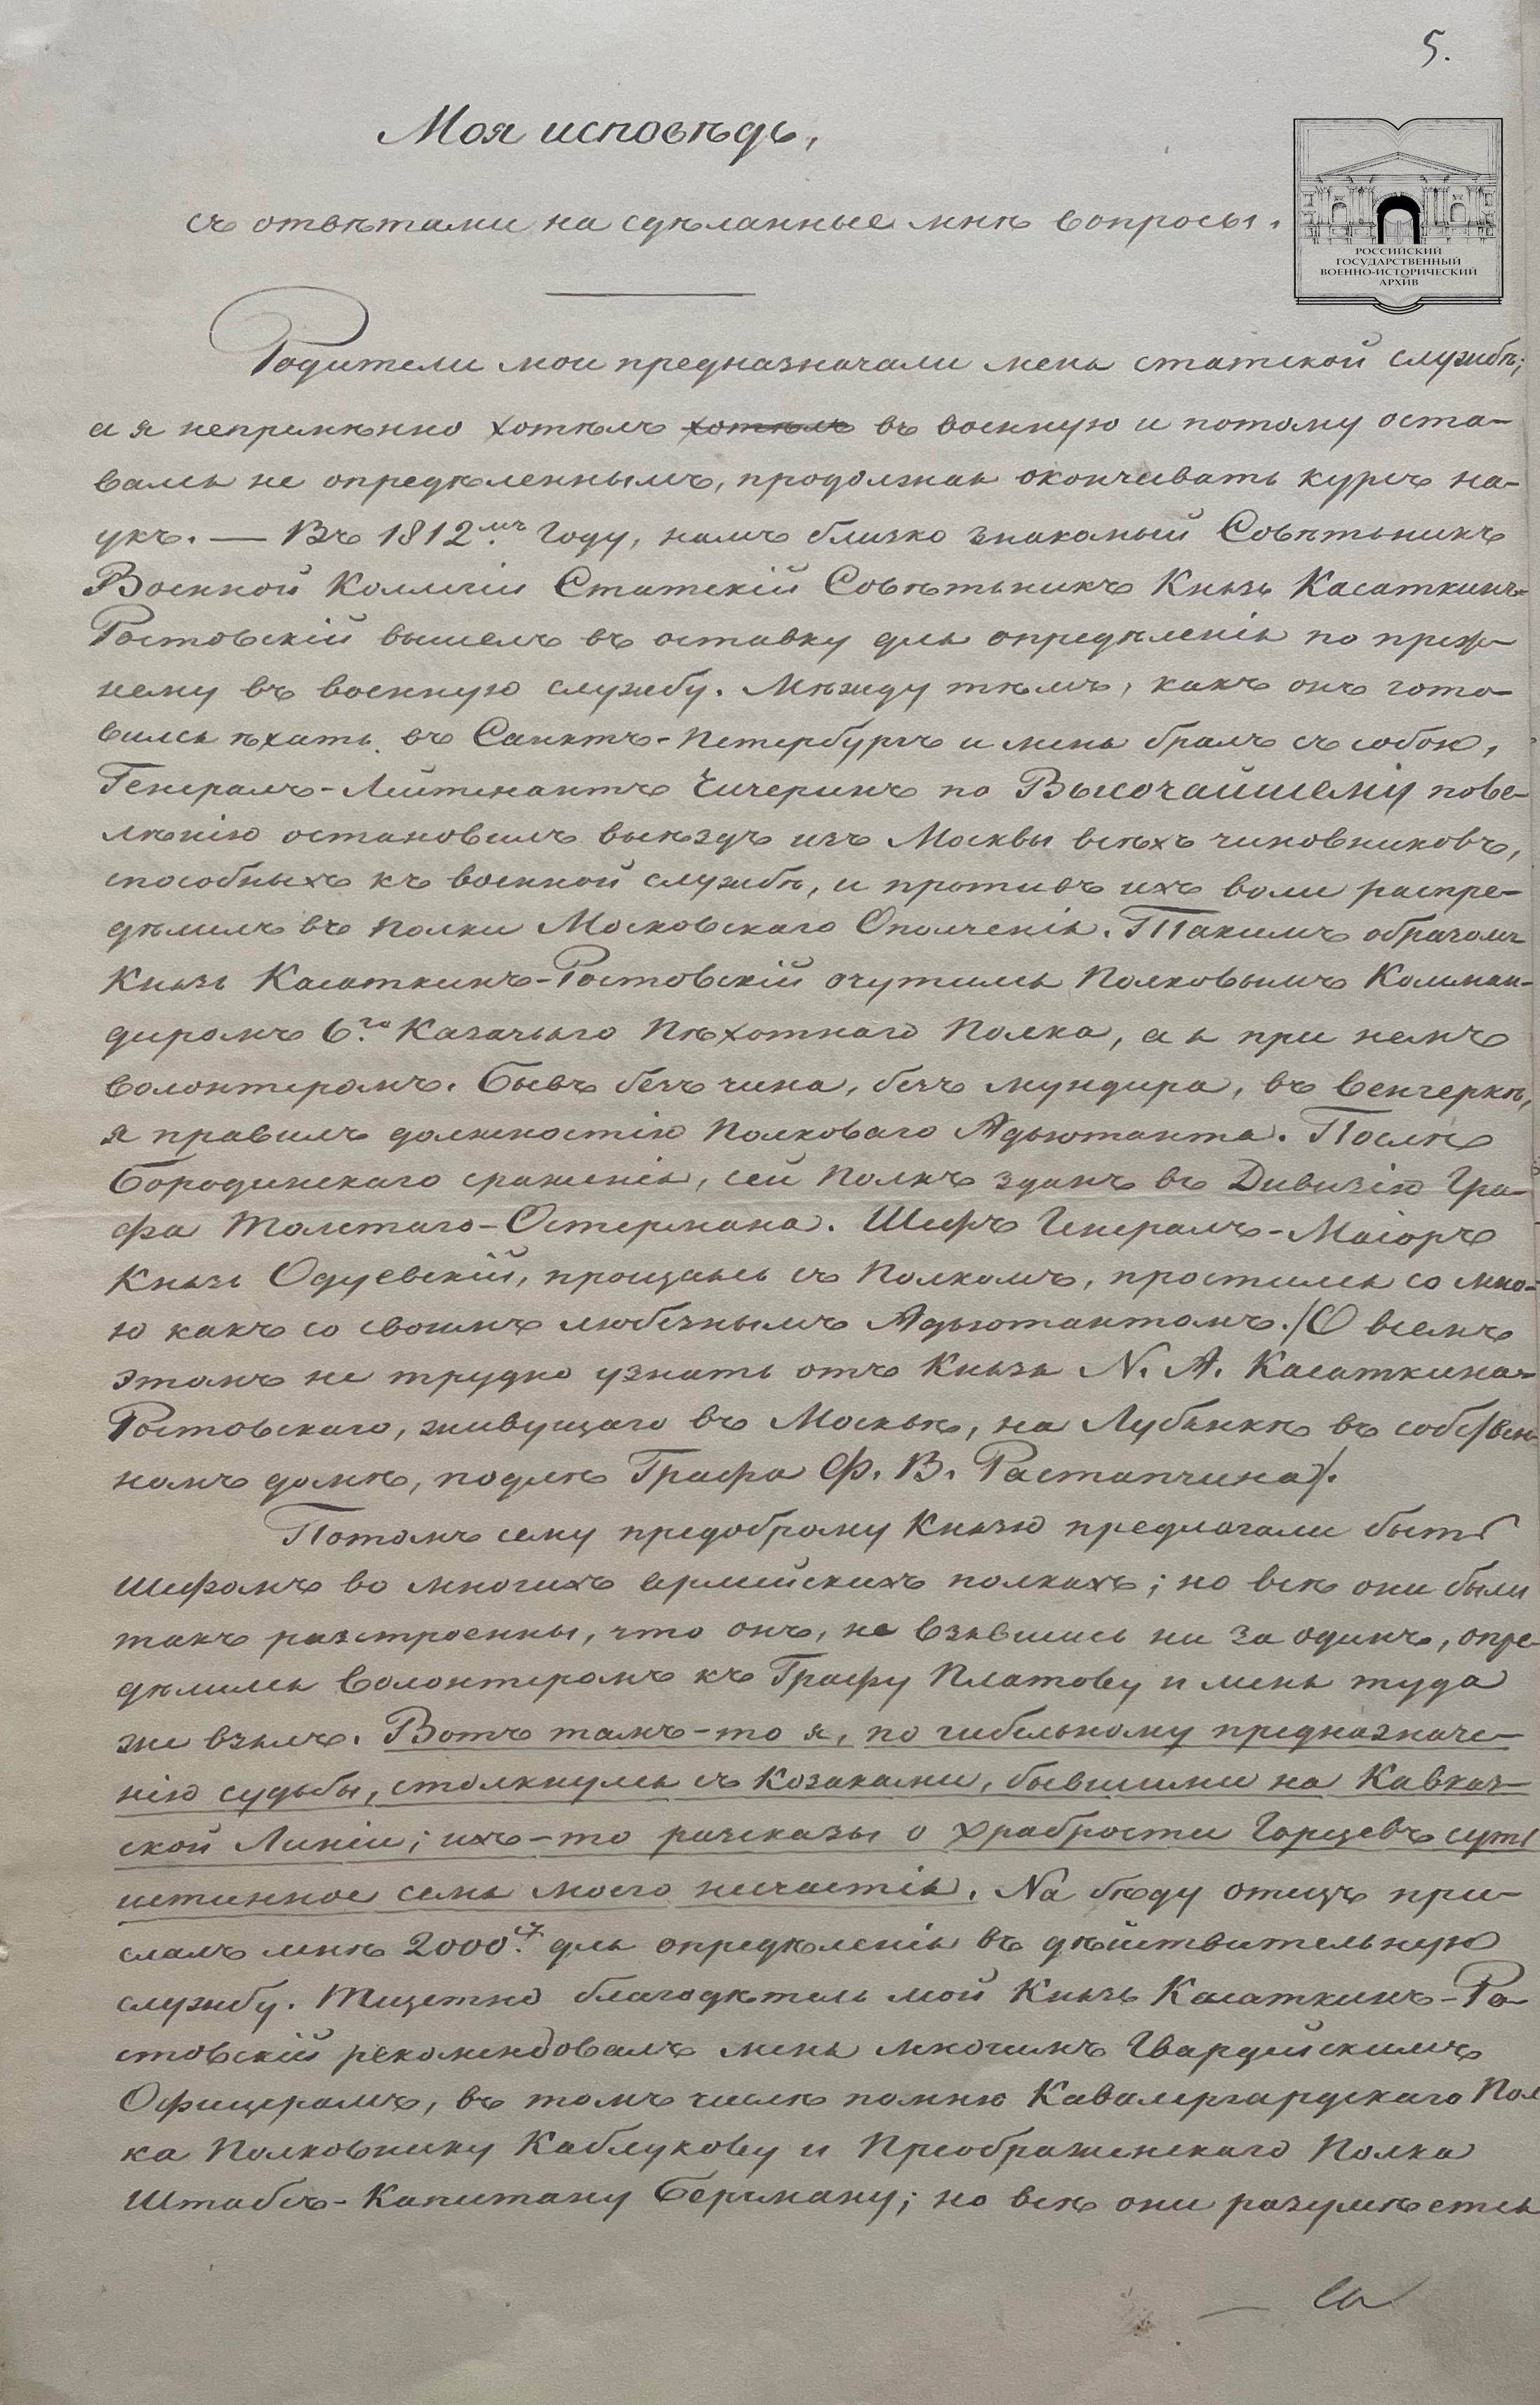 5.
Моя исповѣдь,
съ отвѣтами на сдѣланные мнѣ вопросы.
РОССИЙСКИЙ
ГОСУДАРСТВЕННЫЙ
ВОЕННО-ИСТОРИЧЕСКИЙ
АРХИВ
Родители мои предназначали меня статской службѣ;
а я непремѣнно хотѣлъ хотѣлъ въ военную и потому оста-
вался не опредѣленнымъ, продолжая окончивать курсъ на-
укъ. — Въ 1812мъ Году, намъ близко знакомый Совѣтникъ
Военной Коллегіи Статскій Совѣтникъ Князь Касаткинъ-
Ростовскій вышелъ въ оставку для опредѣленія по преж-
нему въ военную службу. Между тѣмъ, какъ онъ гото-
вился ѣхать въ Санктъ-Петербургъ и меня бралъ съ собою,
Генералъ-Лейтенантъ Чичеринъ по Высочайшему пове-
лѣнію остановилъ выѣздъ изъ Москвы всѣхъ чиновниковъ,
способныхъ къ военной службѣ, и противъ ихъ воли распре-
дѣлилъ въ полки Московскаго Ополченія. Такимъ образомъ
Князь Касаткинъ-Ростовскій очутился Полковымъ Коман-
диромъ 6го Казачьяго Пѣхотнаго Полка, а я при немъ
волонтеромъ. Бывъ безъ чина, безъ мундира, въ венгеркѣ,
я правилъ должностію Полковаго Адъютанта. Послѣ
Бородинскаго сраженія, сей Полкъ зданъ въ Дивизію Гра-
фа Толстаго-Остермана. Шефъ Генералъ-Маіоръ
Князь Одуевскій, прощаясь съ Полкомъ, простился со мно-
ю какъ со своимъ любезнымъ Адъютантомъ. /О всемъ
этомъ не трудно узнать отъ Князя N. А. Касаткина-
Ростовскаго, живущаго въ Москвѣ, на Лубянкѣ въ собствен-
номъ домѣ, подлѣ Графа Ф. В. Растапчина/.
Потомъ сему предоброму Князю предлагали быть
Шефомъ во многихъ армейскихъ полкахъ; но всѣ они были
такъ разстроенны, что онъ, не взявшись ни за одинъ, опре-
дѣлился волонтеромъ къ Графу Платову и меня туда
же взялъ. Вотъ тамъ-то я, по гибельному предназначе-
нію судьбы, столкнулся съ Козаками, бывшими на Кавказ-
ской Линіи; ихъ-то разсказы о храбрости Горцевъ суть
истинное семя моего несчастія. На бѣду отецъ при-
слалъ мнѣ 2000 для опредѣленія въ дѣйствительную
службу. Тщетно благодѣтель мой Князь Касаткинъ-Ро-
стовскій рекомендовалъ меня многимъ Гвардейскимъ
Офицерамъ, въ томъ числѣ помню Кавалергардскаго Пол
ка Полковнику Каблукову и Преображенскаго Полка
Штабсъ-Капитану Бергману; но всѣ они разумѣется